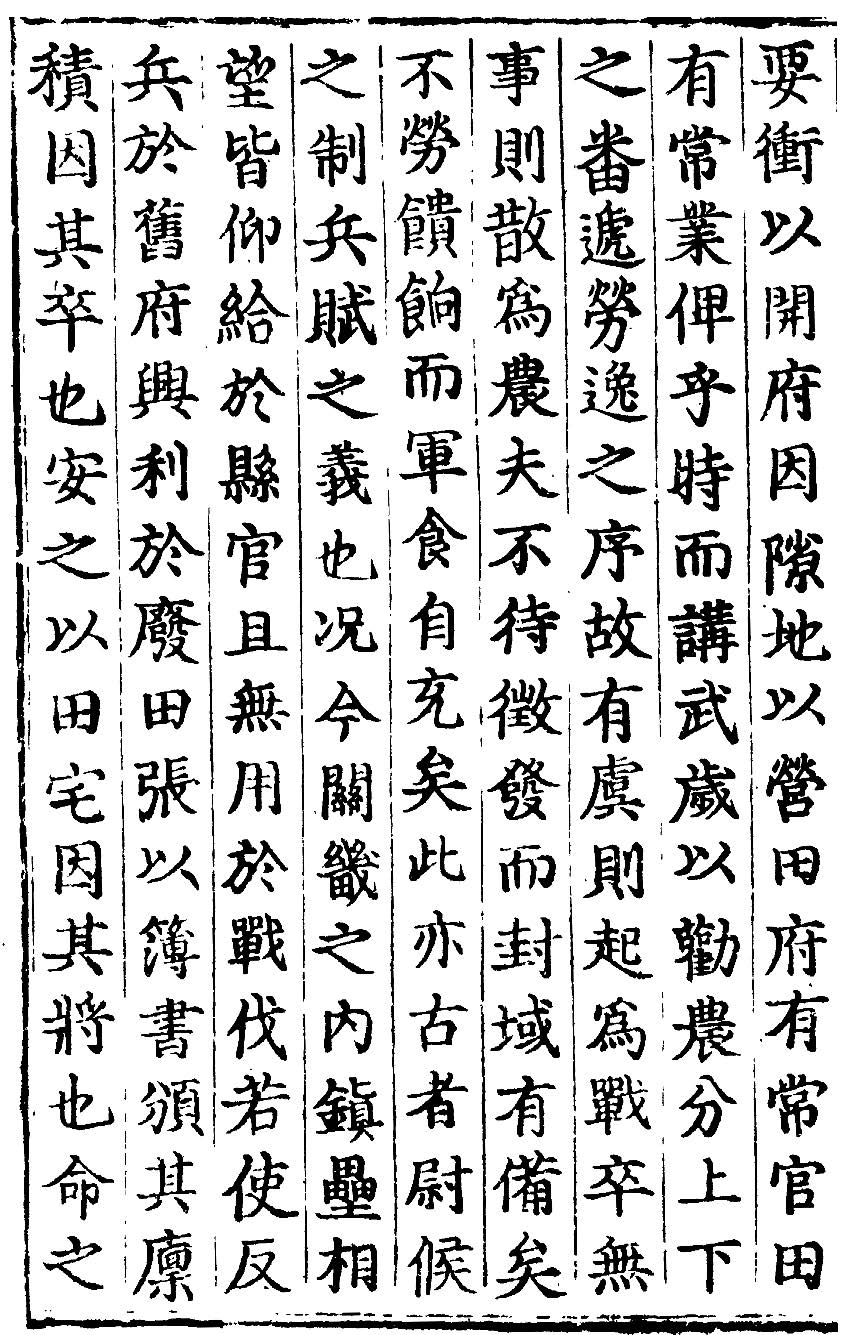 要衝以開府因隙地以營田府有常官田
有常業俾乎時而講武歲以勸農分上下
之番遞勞逸之序故有虞則起爲戰卒無
事則散爲農夫不待徵發而封域有備矣
不勞饋餉而軍食自充矣此亦古者尉候
之制兵賦之義也况今關畿之內鎮壘相
望皆仰給於縣官且無用於戰伐若使反
兵於舊府興利於廢田張以簿書頒其廩
積因其卒也安之以田宅因其將也命之